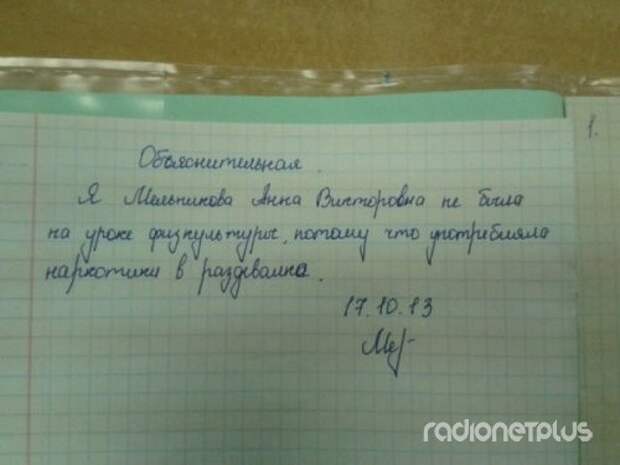 1.
Объяснительная.
Я Мельникова Анна Викторовна не была
на уроке физкультуры, потому что употребляла
наркотики в раздевалке.
17.10.13
radionetplus